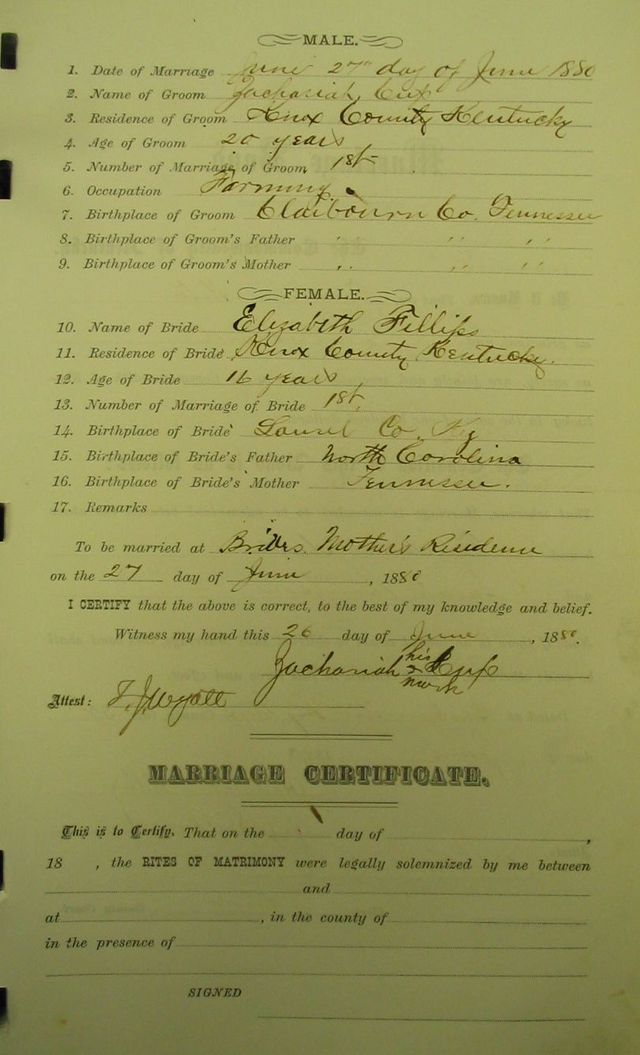 MALE.
1. Date of Marriage June 27th day of June 1880
2. Name of Groom Zachariah Cupp
3. Residence of Groom Knox County Kentucky
4. Age of Groom 20 years
5. Number of Marriage of Groom 1st
6. Occupation Farming
7. Birthplace of Groom Claibourn Co. Tennessee
8. Birthplace of Groom's Father " " "
9. Birthplace of Groom's Mother " " "
FEMALE.
10. Name of Bride Elizabeth Fillips
11. Residence of Bride Knox County Kentucky.
12. Age of Bride 16 years
13. Number of Marriage of Bride 1st
14. Birthplace of Bride Laurel Co. Ky
15. Birthplace of Bride's Father North Carolina
16. Birthplace of Bride's Mother Tennessee.
17. Remarks
To be married at Brides Mother's Residence
on the 27 day of June, 1880
I CERTIFY that the above is correct, to the best of my knowledge and belief.
Witness my hand this 26 day of June, 1880.
Zachariah his x mark Cupp
Attest: T. J. Wyatt
MARRIAGE CERTIFICATE.
This is to Certify, That on the day of ,
18 , the RITES OF MATRIMONY were legally solemnized by me between
and
at , in the county of
in the presence of
SIGNED